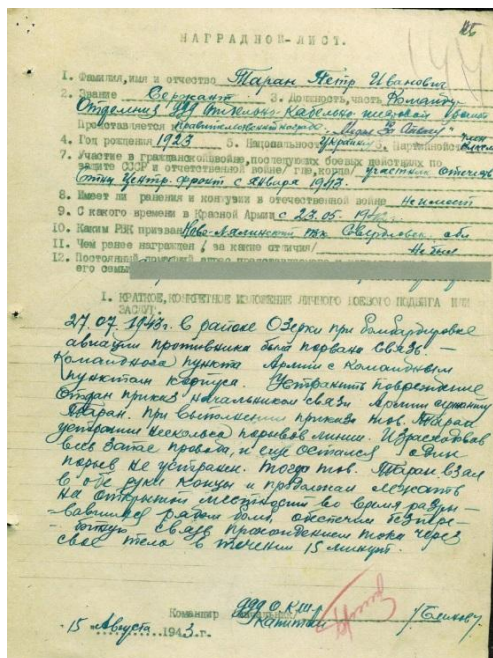 НАГРАДНОЙ - ЛИСТ.
1. Фамилия, имя и отчество Таран Петр Иванович
2. Звание Сержант 3. Должность, часть Командир
Отделения 999 Кабельно-шестовой
Представляется к правительственной награде „Медаль За Отвагу"
4. Год рождения 1923 5. Национальность украинец 6. Партийность
7. Участие в гражданской войне, последующих боевых действиях по
защите СССР и отечественной войне/ где, когда/ участник отечеств.
Центр. фронт с января 1943.
8. Имеет ли ранения и контузии в отечественной войне Не имеет
9. С какого времени в Красной Армии с 23.05.
10. Каким РВК призван Ново-Лялинский Свердловск. обл
11. Чем ранее награжден / за какие отличия/ Не был
12. Постоянный домашний адрес
его семьи
I. КРАТКОЕ, КОНКРЕТНОЕ ИЗЛОЖЕНИЕ ЛИЧНОГО БОЕВОГО ПОДВИГА ИЛИ
ЗАСЛУГ.
27.07.1943г. в районе Озерки при бомбардировке
авиации противника была порвана связь –
Командного пункта Армии с командным
пунктом корпуса. Устранить повреждение
отдан приказ начальником связи Армии сержанту
Таран. При выполнении приказа тов. Таран
устранил несколько порывов линии. Израсходовав
весь запас провода, и еще остался один
порыв не устранен. Тогда тов. Таран взял
в обе руки концы и продолжал лежать
на открытой местности во время разры-
вавшихся рядом бомб, обеспечил беспере-
бойную связь прохождением тока через
свое тело в течении 15 минут.
Командир 999 О.К.Ш.
Капитан /Блинов/
"15" Августа 1943 г.